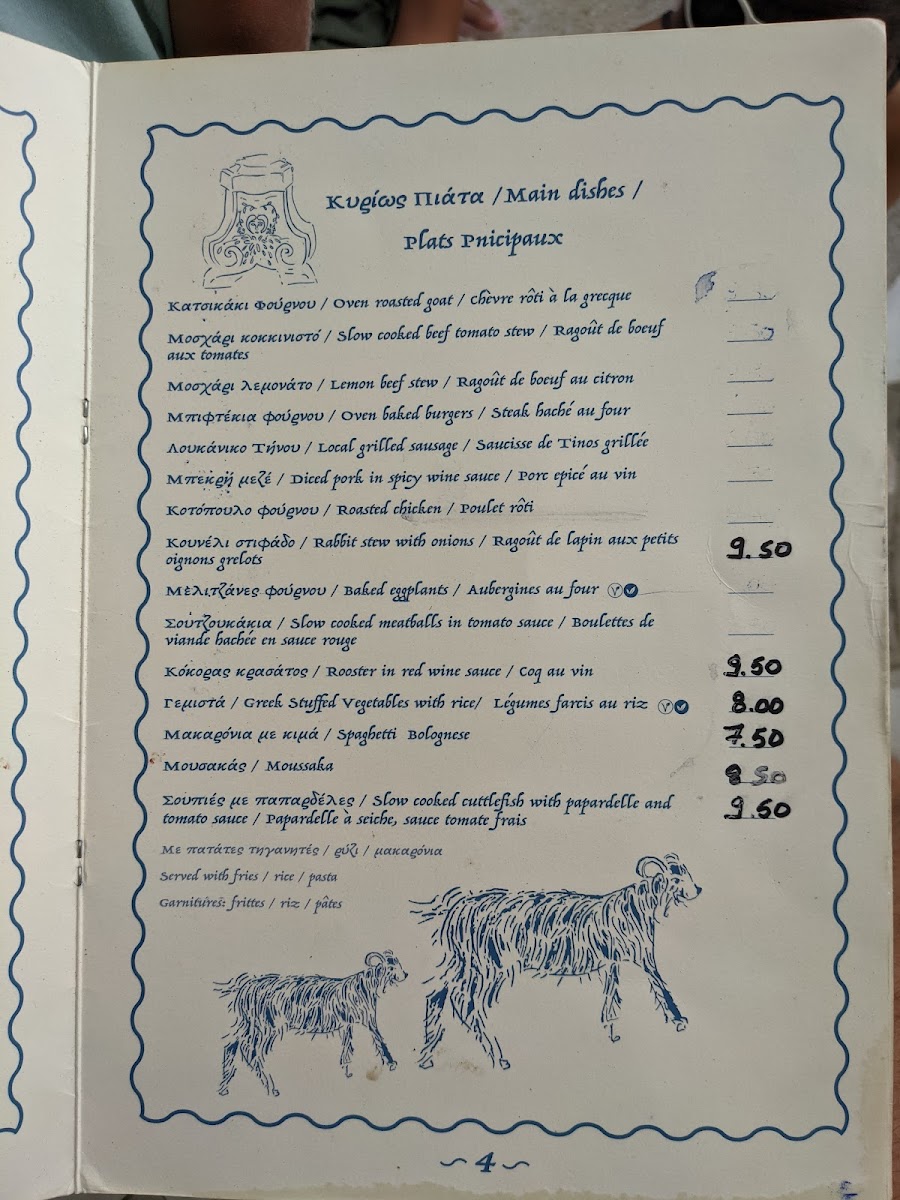 Κυρίως Πιάτα / Main dishes /
Plats Pnicipaux
Κατσικάκι Φούρνου / Oven roasted goat / Chèvre rôti à la grecque
Μοσχάρι κοκκινιστό / Slow cooked beef tomato stew / Ragoût de boeuf
aux tomates
Μοσχάρι λεμονάτο / Lemon beef stew / Ragoût de boeuf au citron
Μπιφτέκια φούρνου / Oven baked burgers / Steak haché au four
Λουκάνικο Τήνου / Local grilled sausage / Saucisse de Tinos grillée
Μπεκρή μεζέ / Diced pork in spicy wine sauce / Porc epicé au vin
Κοτόπουλο φούρνου / Roasted chicken / Poulet rôti
Κουνέλι στιφάδο / Rabbit stew with onions / Ragoût de lapin aux petits
oignons grelots 9.50
Μελιτζάνες φούρνου / Baked eggplants / Aubergines au four
Σουτζουκάκια / Slow cooked meatballs in tomato sauce / Boulettes de
viande hachée en sauce rouge
Κόκορας κρασάτος / Rooster in red wine sauce / Coq au vin 9.50
Γεμιστά / Greek Stuffed Vegetables with rice/ Légumes farcis au riz 8.00
Μακαρόνια με κιμά / Spaghetti Bolognese 7.50
Μουσακάς / Moussaka 8 50
Σουπιές με παπαρδέλες / Slow cooked cuttlefish with papardelle and
tomato sauce / Papardelle à seiche, sauce tomate frais 9.50
Με πατάτες τηγανητές / ρύζι / μακαρόνια
Served with fries / rice / pasta
Garnitures: frittes / riz / pâtes
~ 4 ~